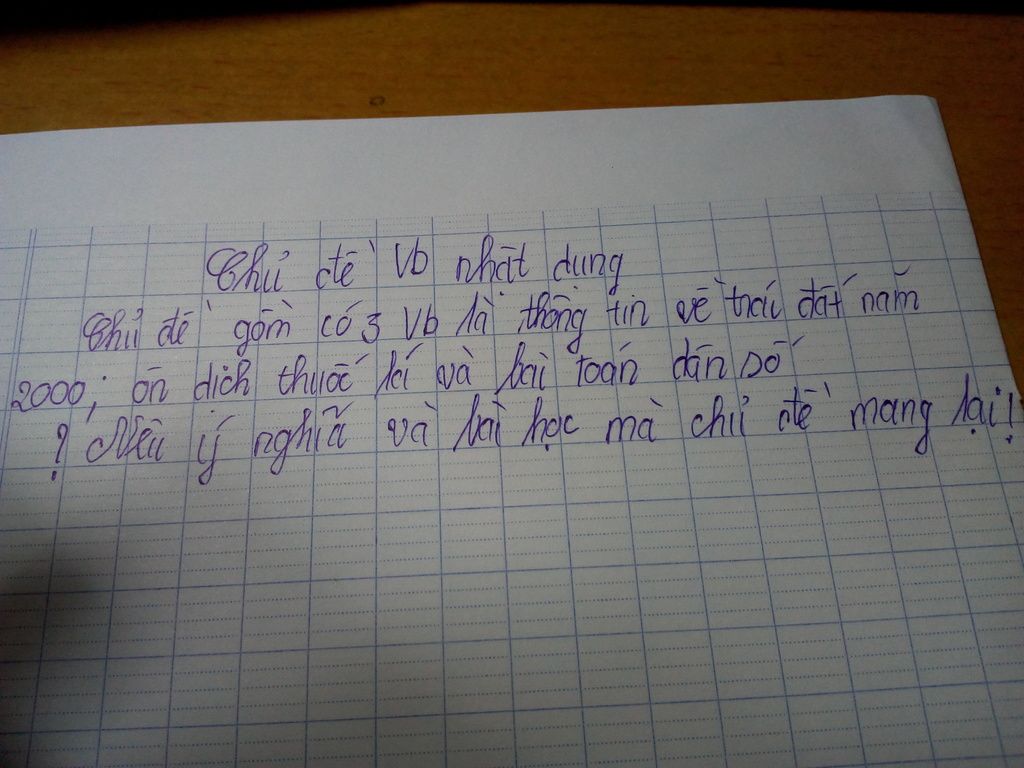 Chủ đề Vb nhật dụng
Chủ đề gồm có 3 Vb là thông tin về trái đất năm
2000; ôn dịch thuốc lá và bài toán dân số
? Nêu ý nghĩa và bài học mà chủ đề mang lại!